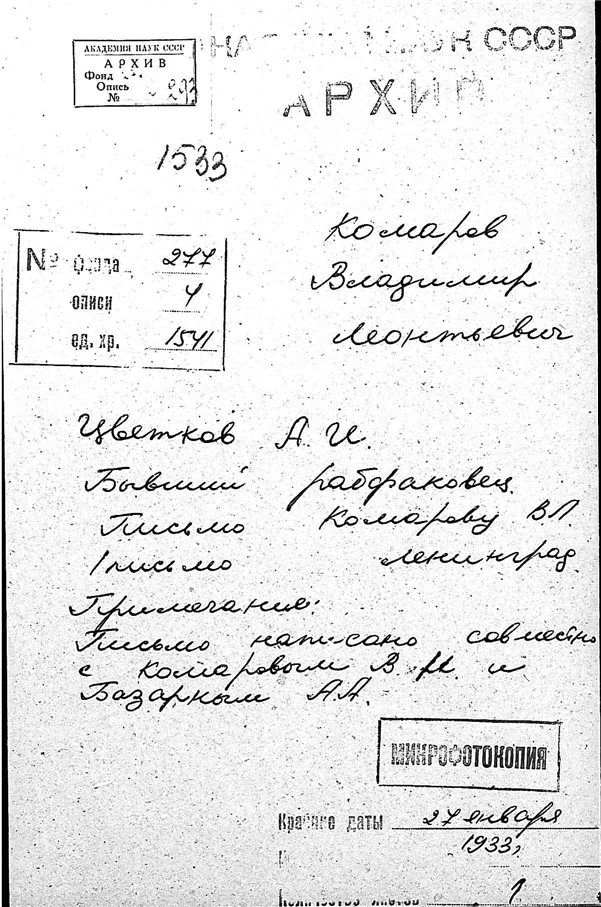 АКАДЕМИЯ НАУК СССР
АРХИВ
Фонд
Опись
№ 293
НАУК СССР
АРХИВ
1533
Комаров
Владимир
Леонтьевич
№ фонда 277
описи 4
ед. хр. 1541
Цветков А. И.
Бывший рабфаковец.
Письмо Комарову В.Л.
1 письмо Ленинград
Примечания:
Письмо написано совместно
с Комаровым В. и
Базарным А.А.
МИКРОФОТОКОПИЯ
Крайние даты 27 января
1933г
Количество листов 1